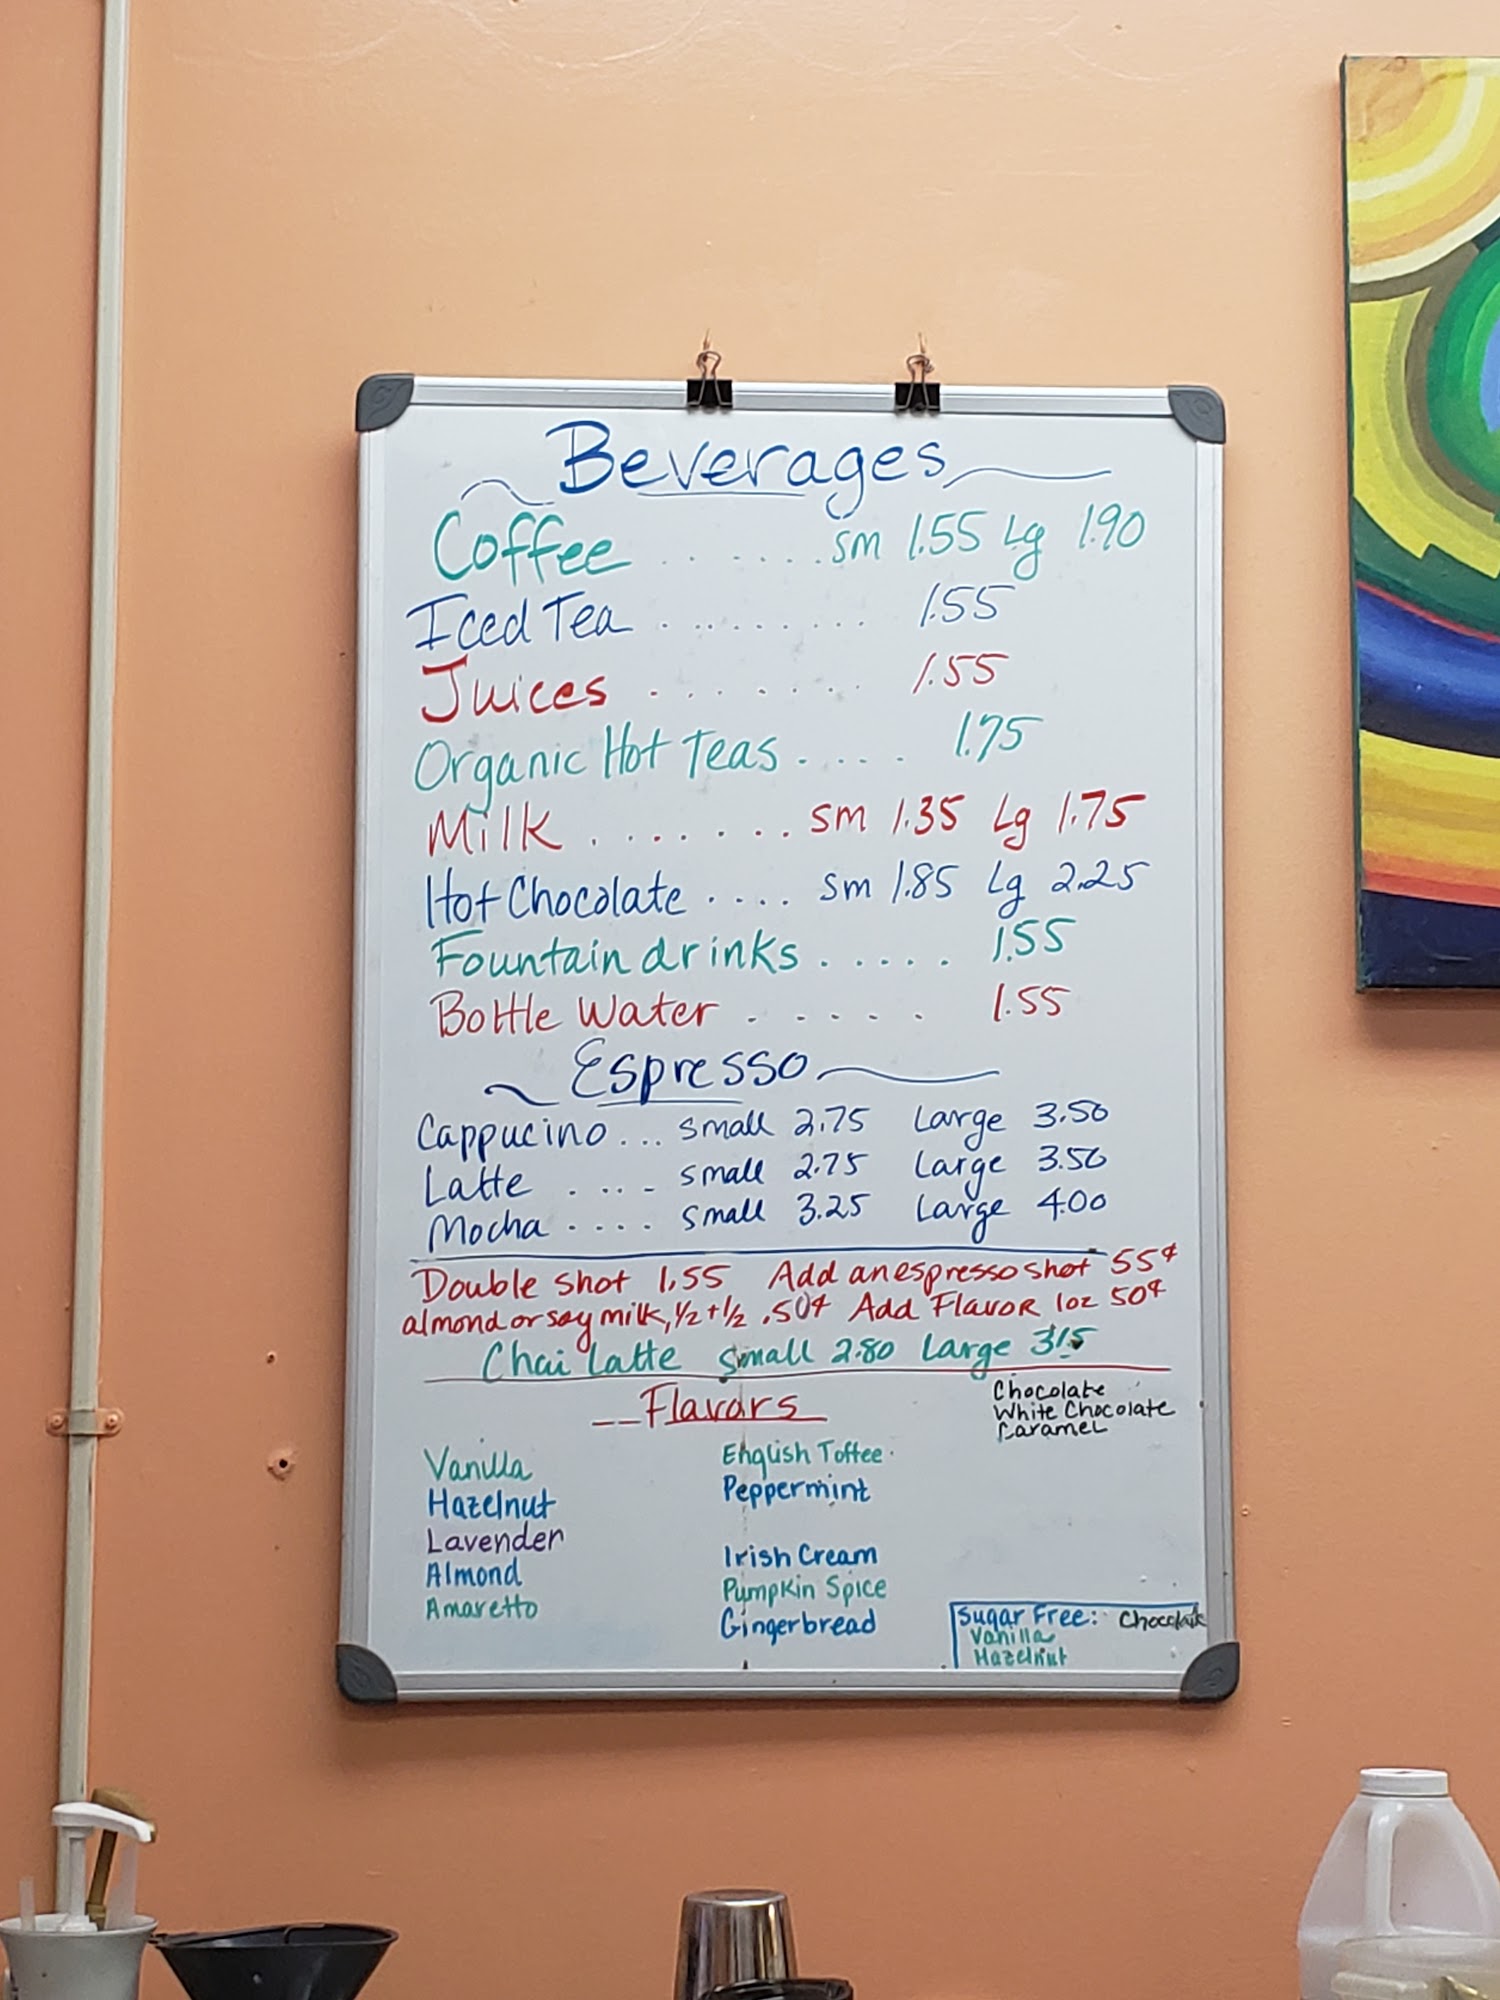 Beverages
Coffee ....... sm 1.55 Lg 1.90
Iced Tea ......... 1.55
Juices ....... 1.55
Organic Hot Teas .... 1.75
Milk ....... sm 1.35 Lg 1.75
Hot Chocolate .... sm 1.85 Lg 2.25
Fountain drinks ..... 1.55
Bottle Water ..... 1.55
Espresso
Cappucino... small 2.75 Large 3.50
Latte .... small 2.75 Large 3.50
Mocha .... small 3.25 Large 4.00
Double shot 1.55 Add an espresso shot 55¢
almond or soy milk, 1/2 + 1/2 .50¢ Add Flavor 1oz 50¢
Chai Latte small 2.80 Large 3.15
Flavors
Chocolate
White Chocolate
Caramel
Vanilla
Hazelnut
Lavender
Almond
Amaretto
English Toffee
Peppermint
Irish Cream
Pumpkin Spice
Gingerbread
Sugar Free: Chocolate
Vanilla
Hazelnut